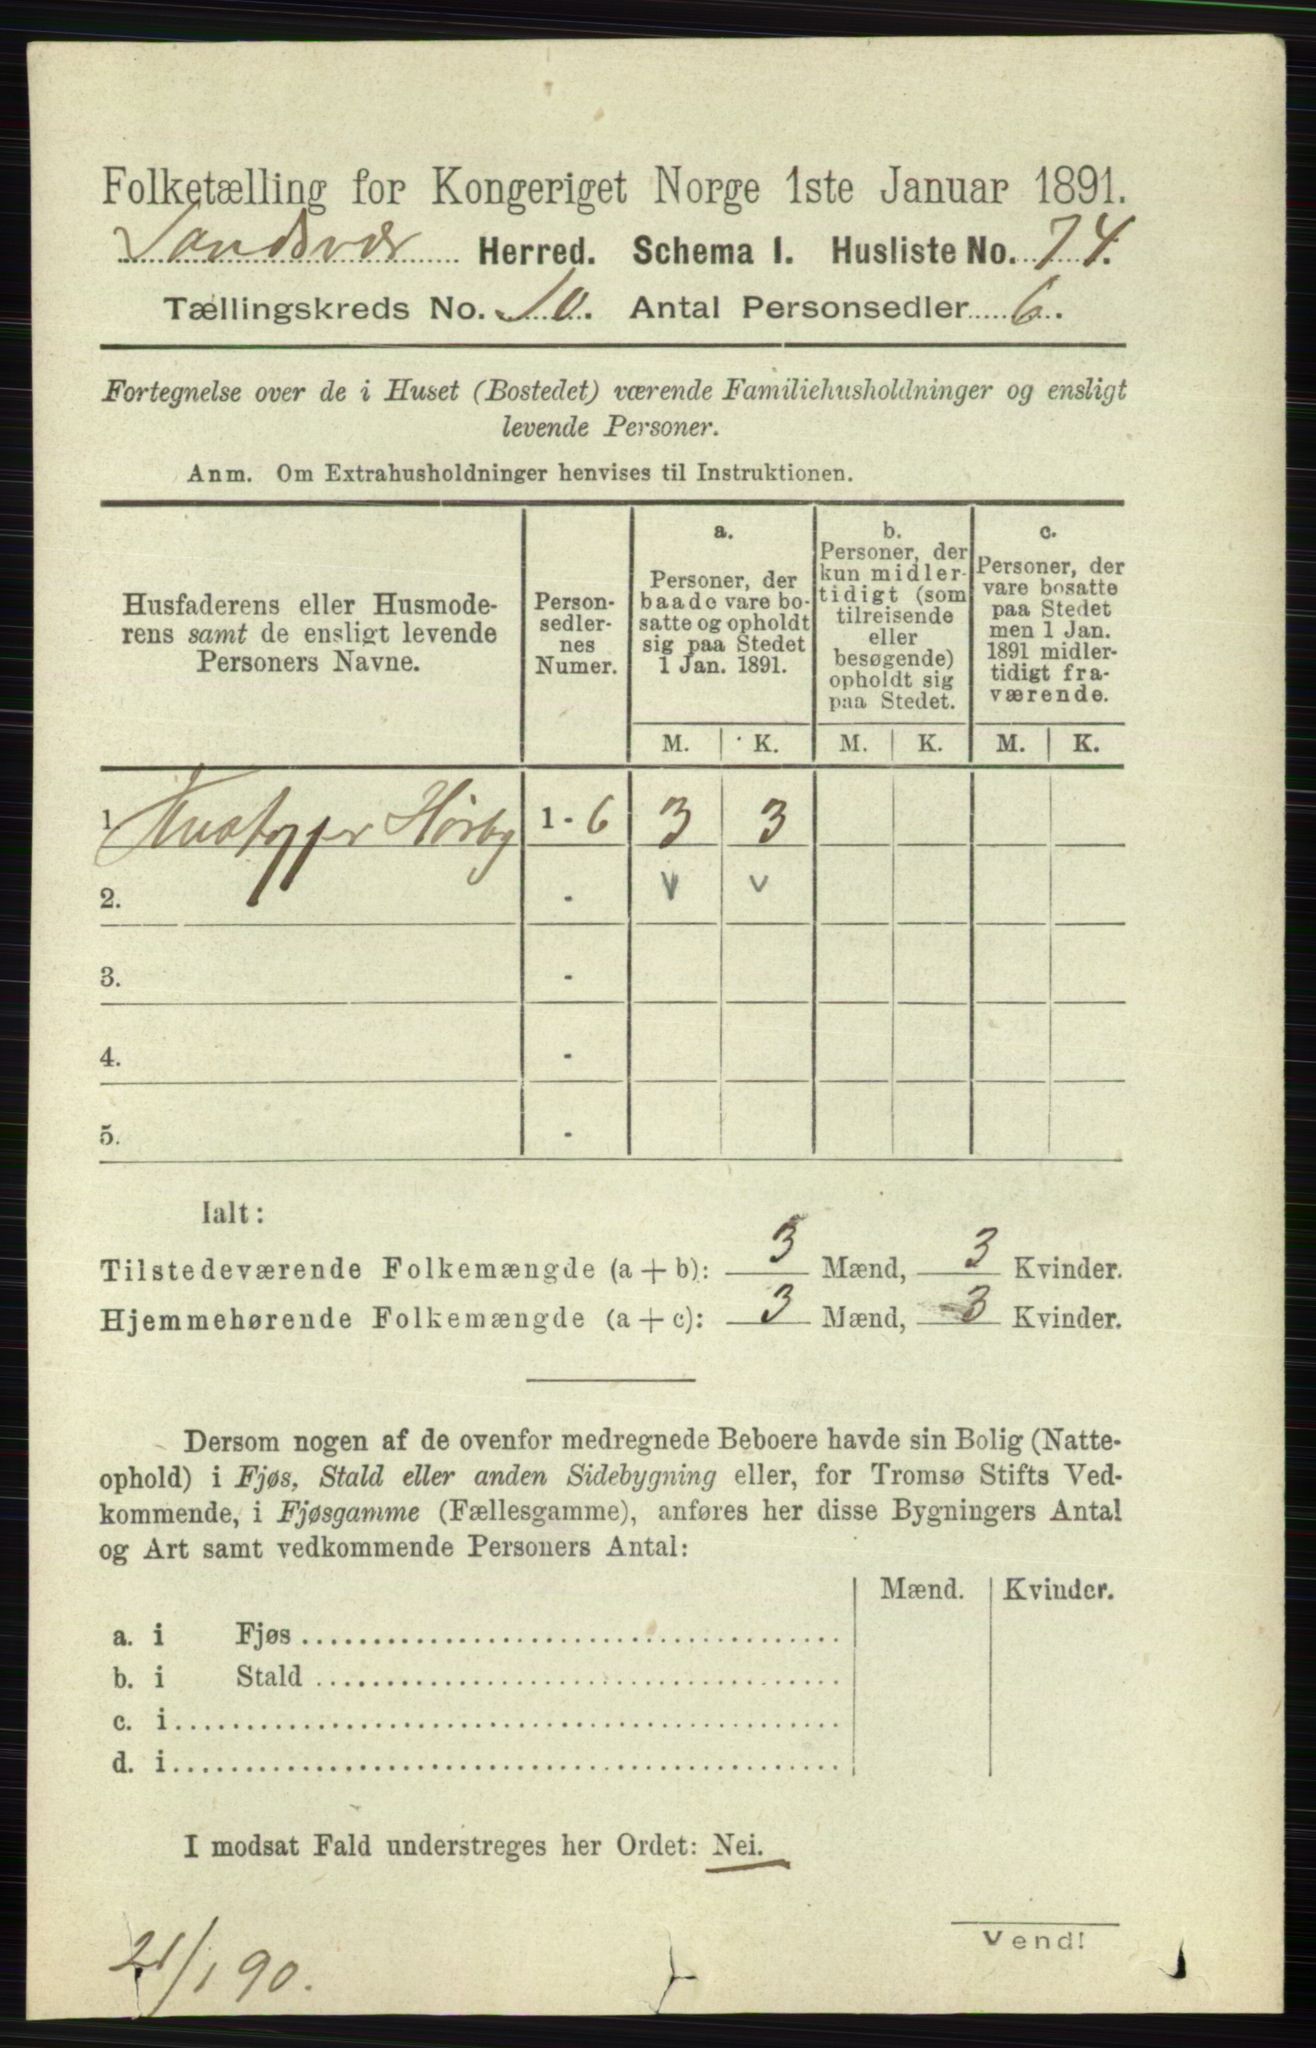 Folketælling for Kongeriget Norge 1ste Januar 1891.
Sandsvær Herred. Schema 1. Husliste No. 74.
Tællingskreds No. 10. Antal Personsedler 6.
Fortegnelse over de i Huset (Bostedet) værende Familiehusholdninger og ensligt
levende Personer.
Anm. Om Extrahusholdninger henvises til Instruktionen.
Husfaderens eller Husmode-
rens samt de ensligt levende
Personers Navne.
Person-
sedler-
nes
Numer.
a.
Personer, der
baade vare bo-
satte og opholdt
sig paa Stedet
1 Jan. 1891.
b.
Personer, der
kun midler-
tidigt (som
tilreisende
eller
besøgende)
opholdt sig
paa Stedet.
c.
Personer, der
vare bosatte
paa Stedet
men 1 Jan.
1891 midler-
tidigt fra-
værende.
M. K. M. K. M. K.
1 Hørby 1 - 6 3 3
2. - v v
3. -
4. -
5. -
Ialt:
Tilstedeværende Folkemængde (a + b): 3 Mænd, 3 Kvinder.
Hjemmehørende Folkemængde (a + c): 3 Mænd, 3 Kvinder.
Dersom nogen af de ovenfor medregnede Beboere havde sin Bolig (Natte-
ophold) i Fjøs, Stald eller anden Sidebygning eller, for Tromsø Stifts Ved-
kommende, i Fjøsgamme (Fællesgamme), anføres her disse Bygningers Antal
og Art samt vedkommende Personers Antal:
Mænd. Kvinder.
a. i Fjøs
b. i Stald
c. i
d. i
I modsat Fald understreges her Ordet: Nei.
Vend!
21/190.